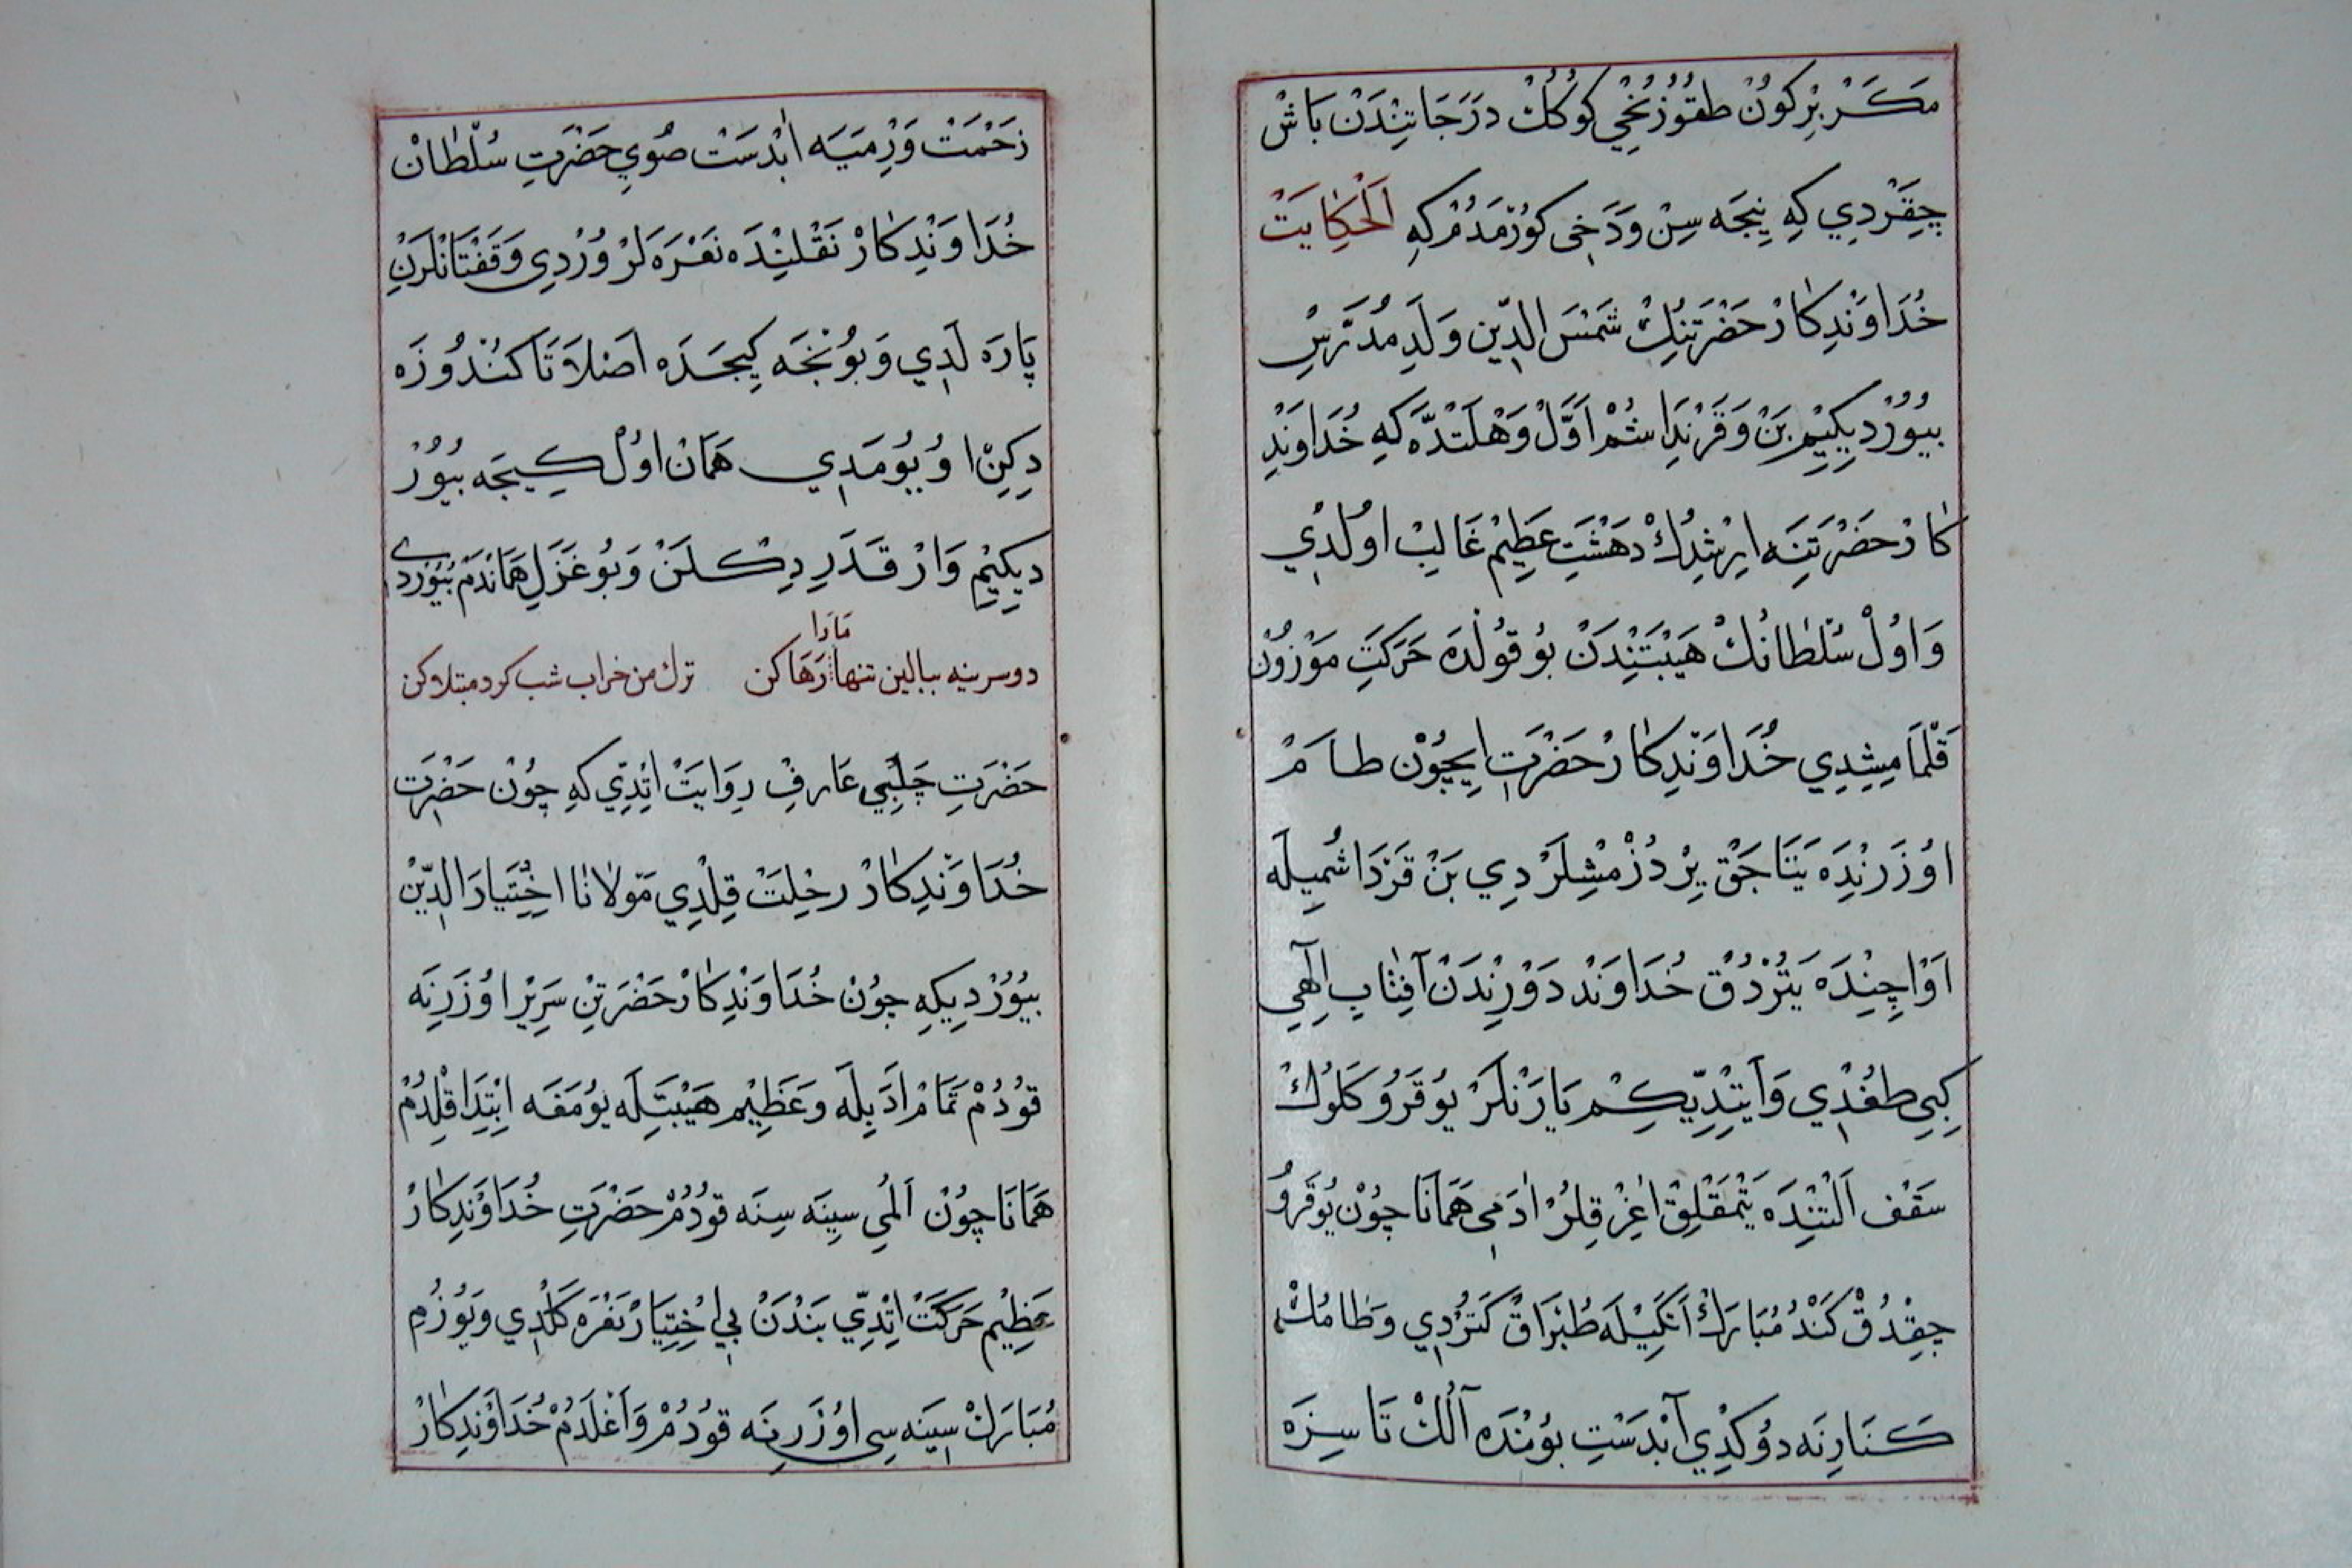 مَكَرْ بِرْ كُونْ طقُوزُنْجِي كُوكُكْ دَرَجَاتِنْدَنْ بَاشْ
چِقَرْدِي كِه نِيجَه سِنْ وَدَخِى كُورْمَدُمْ كِه اَلْحِكَايَتْ
خُدَاوَنْدِكَارْ حَضْرَتِنِكْ شَمْسَ الدِّين وَلَدِ مُدَرِّسْ
بيُورْدِيكِيمْ بَنْ وَقَرِنْدَاشُمْ اَوَّلْ وَهْلَتْدَه كِه خُدَاوَنْدِ
كَارْ حَضْرَتِنَه ايرِشِدُكْ دَهْشَتِ عَظِيمْ غَالِبْ اولْدِي
وَاوُلْ سُلْطَانُكْ هَيْبَتِنْدَنْ بُو قُولْدَه حَرَكَتِ مَوْزُونْ
قَلْمَامِشِدِي خُدَاوَنْدِكَارْ حَضْرَتِ ايچُونْ طَامْ
اوُزَرِنْدَه يَتَاجَقْ يِرْ دُزْمِشْلَرْدِي بَنْ قَرَنْدَاشُمِيلَه
اَوْ اِچِنْدَه يَتُرْدُقْ خُدَاوَنْد دَوْرِنْدَنْ آفِتَابِ اِلٰهِي
كِبِي طُغْدِي وَاَيِتْدِيكِمْ يَارَنْلَرْ يُوقَرُو كَلُوكْ
سَقْف اَلْتِنْدَه يَتْمَقْلِقْ اغِرْ قِلُرْ ادَمِي هَمَانَا چُونْ يُوقَرُو
چِقْدُقْ كَنْدُ مُبَارَكْ اَلْكِيلَه طُپْرَاقْ كَتُرْدِي وَطَامُكْ
كَنَارِنَه دُوكْدِي آبْدَسْتِ بُوُنْدَه آلُكْ تَا سِزَه
زَحْمَتْ وَرْمَيَه ابْدَسْتْ صُويِ حَضْرَتِ سُلْطَانْ
خُدَاوَنْدِكَارْ نَقْلِنْدَه نَعْرَه لَرْ وُرْدِي وَقَفْتَانْلَرِنْ
پَارَه لَدِي وَبُونْجَه كِيجَه دَه اَصْلَا تَا كُنْدُوزَه
دِكِنْ اوُيُومَدِي هَمَانْ اوُلْ كِيجَه بيُورْ
ديكِيمْ وَارْ قَدَرِ دِكْلَنْ وَبُو غَزَلِ هَمَانْدَمْ بُيُورْدِى
مَارَا
دو سربنه ببالين تنها رَهَا كن ترك من خراب شب كرد مبتلا كن
حَضْرَتِ چَلَبِي عَارِفْ رِوَايَتْ اتِدِّي كِه چُونْ حَضْرَتِ
خُدَاوَنْدِكَارْ رِحْلِتْ قِلْدِي مَوْلَانَا اخْتِيَارَ الدِّينْ
بيُورْدِيكِه چُونْ خُدَاوَنْدِكَارْ حَضْرَتِنْ سَرِيْرْ اوُزَرِنَه
قُودُمْ تَمَامْ ادَبِلَه وَعَظِيمْ هَيْبَتِلَه يُومَغَه ابْتِدَا قِلْدُمْ
هَمَانَا چُونْ اَلُمِي سِينَه سِنَه قُودُمْ حَضْرَتِ خُدَاوَنْدِكَارْ
عَظِيمْ حَرَكَتْ اتِدِّي بَنْدَنْ بِي اخْتِيَارْ نَعْرَه كَلْدِي وَيُوزُمِ
مُبَارَكْ سِينَه سِي اوُزَرِنَه قُودُمْ وَاَغْلَدُمْ خُدَاوَنْدِكَارْ